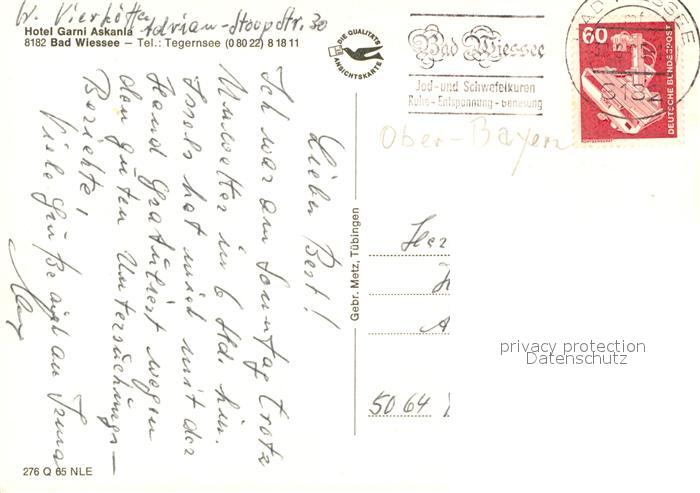 W. Vierkötten
Adrian-Stoopstr. 30
Hotel Garni Askania
8182 Bad Wiessee — Tel.: Tegernsee (0 80 22) 8 18 11
DIE QUALITÄTS
ANSICHTSKARTE
Bad Wiessee
Jod- und Schwefelkuren
Ruhe - Entspannung - Genesung
BAD WIESSEE
8182
60
DEUTSCHE BUNDESPOST
Ober-Bayern
Lieber Bert!
Ich war am Sonntag trotz
Unwetter in 6 Std. hier.
Issels hat mich mit der
Hand gratuliert wegen
den guten Untersuchungs-
Berichte,
Viele Grüße auch an Irma
Gebr. Metz, Tübingen
5064
privacy protection
Datenschutz
276 Q 65 NLE